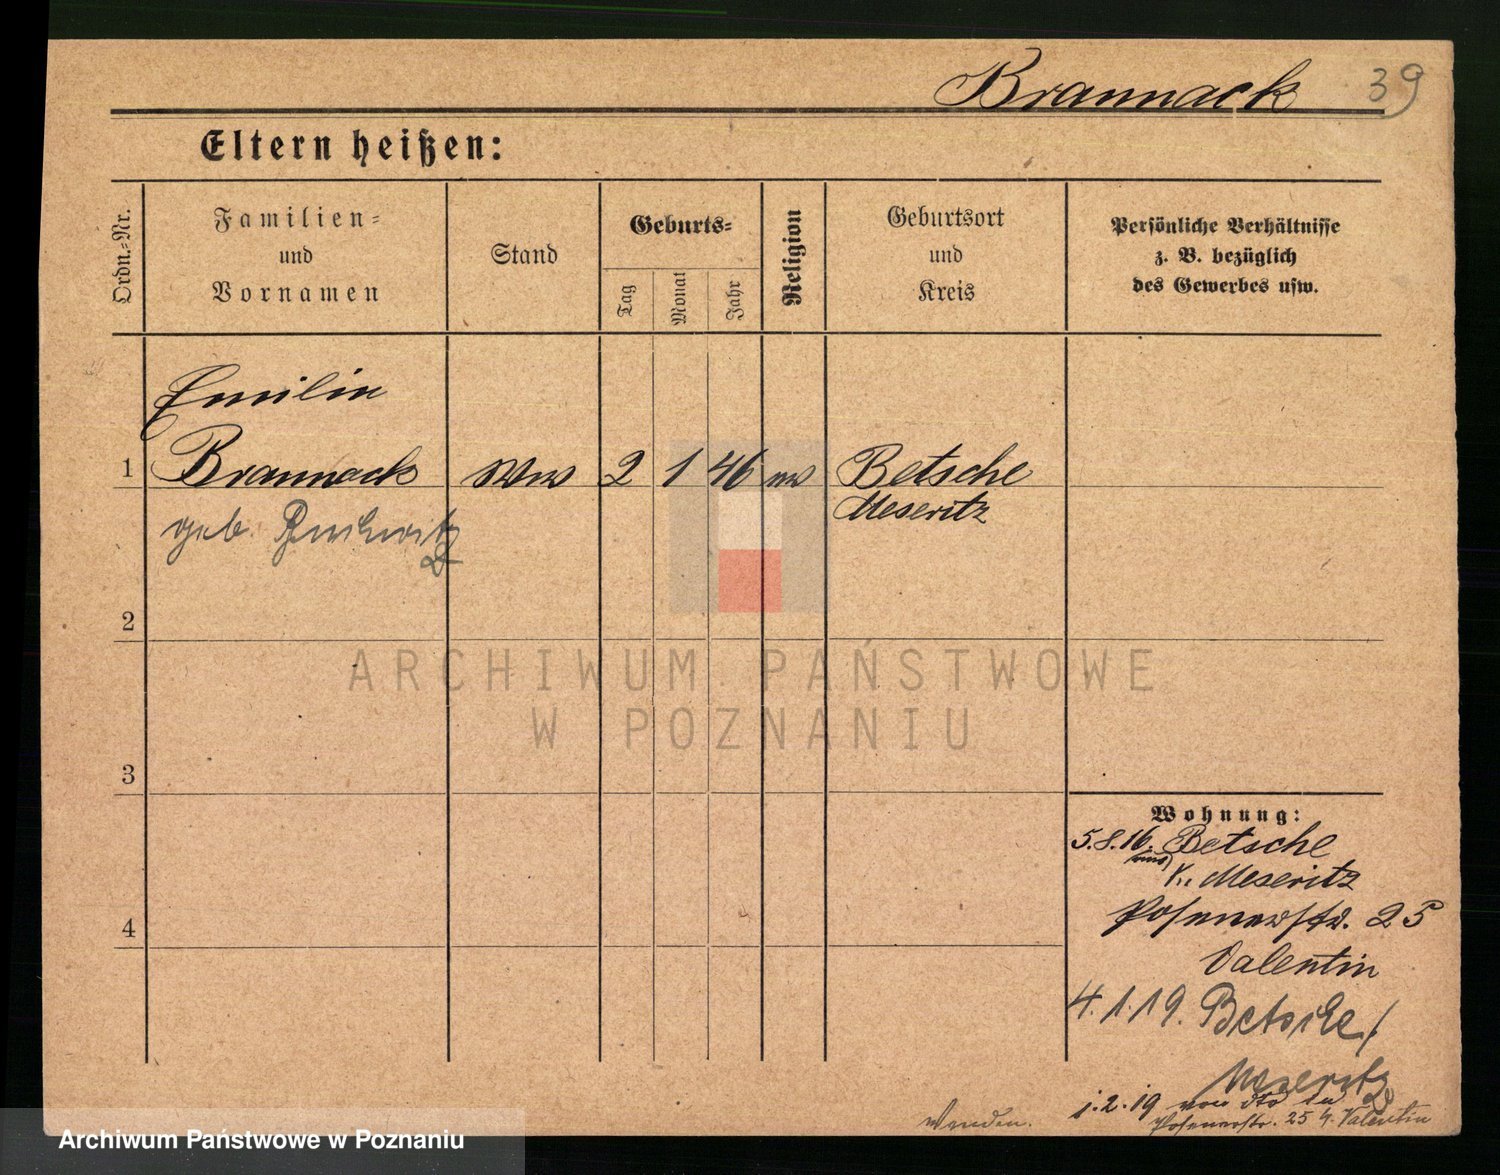 Brannack 39
Eltern heißen:
Ordn.=Nr.
Familien=
und
Vornamen
Stand
Geburts=
Tag
Monat
Jahr
Religion
Geburtsort
und
Kreis
Persönliche Verhältnisse
z. B. bezüglich
des Gewerbes usw.
Emilie
1 Brannack Ww 2 1 46 ev Betsche
Meseritz
geb.
2
3
4
Wohnung:
5.8.16. Betsche
Kr. Meseritz
Posenerstr. 25
Valentin
4.1.19. Betsche/
Meseritz
1.2.19 von dto
Posenerstr. 25 b. Valentin
Wenden.
ARCHIWUM PAŃSTWOWE
W POZNANIU
Archiwum Państwowe w Poznaniu